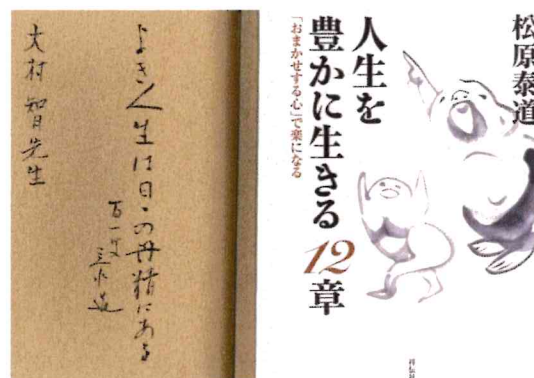 松原泰道
人生を
豊かに生きる12章
「おまかせする心」で楽になる
よき人生は日々の丹精にある
百一歳 泰道
大村智先生